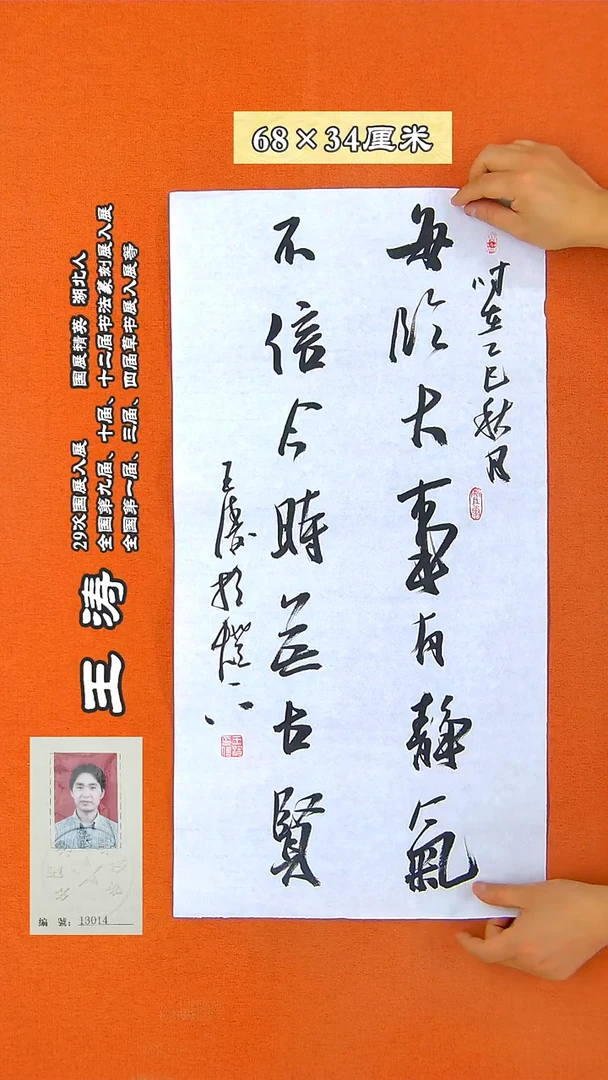 68×34厘米
时在乙巳秋月
每临大事有静氣
不信今時无古賢
王涛於
王涛
29次国展入展 国展精英 湖北人
全国第九届、十届、十二届书法篆刻展入展
全国第一届、三届、四届草书展入展等
編 號：13014